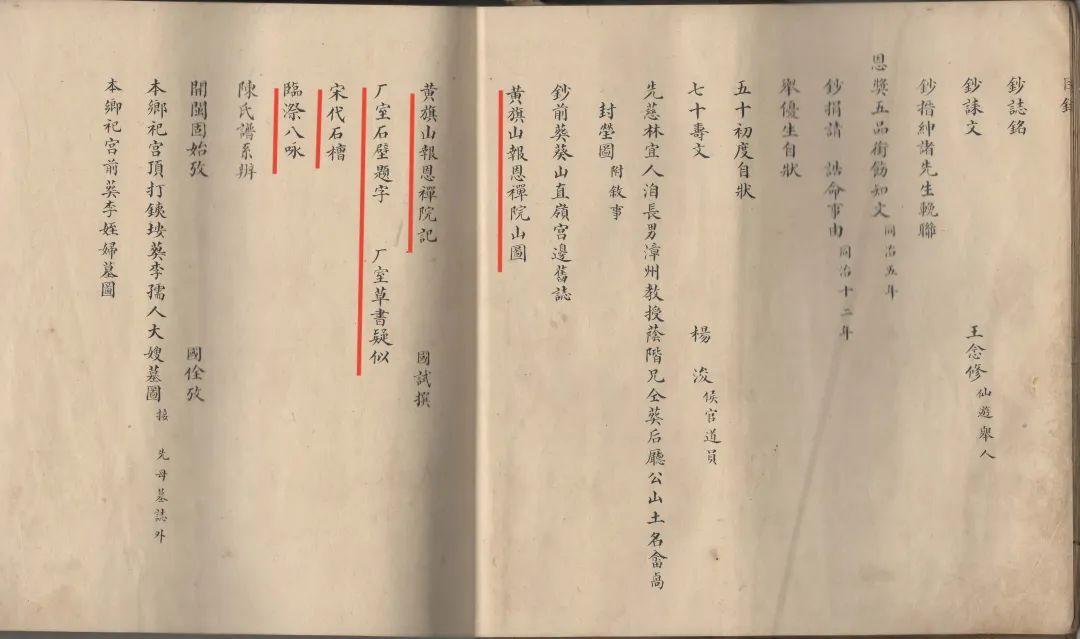 目錄
鈔誌銘
鈔誄文 王念修 仙遊舉人
鈔搢紳諸先生輓聯
恩獎五品銜飭知文 同治五年
鈔捐請 誥命事由 同治十二年
舉優生自狀
五十初度自狀
七十壽文 楊浚 候官道員
先慈林宜人洎長男漳州教授蔭階兄仝葵后廳公山土名畲
封塋圖 附敘事
鈔前葵葵山直嶺宮邊舊誌
黃旗山報恩禪院山圖
黃旗山報恩禪院記 國試撰
厂室石壁題字 厂室草書疑似
宋代石檜
臨漈八咏
陳氏譜系辨
開閩固始攷 國佺攷
本鄉祀宮頂打鋏垵葵李孺人大嫂墓圖 接 先母墓誌外
本鄉祀宮前葵李姪婦墓圖